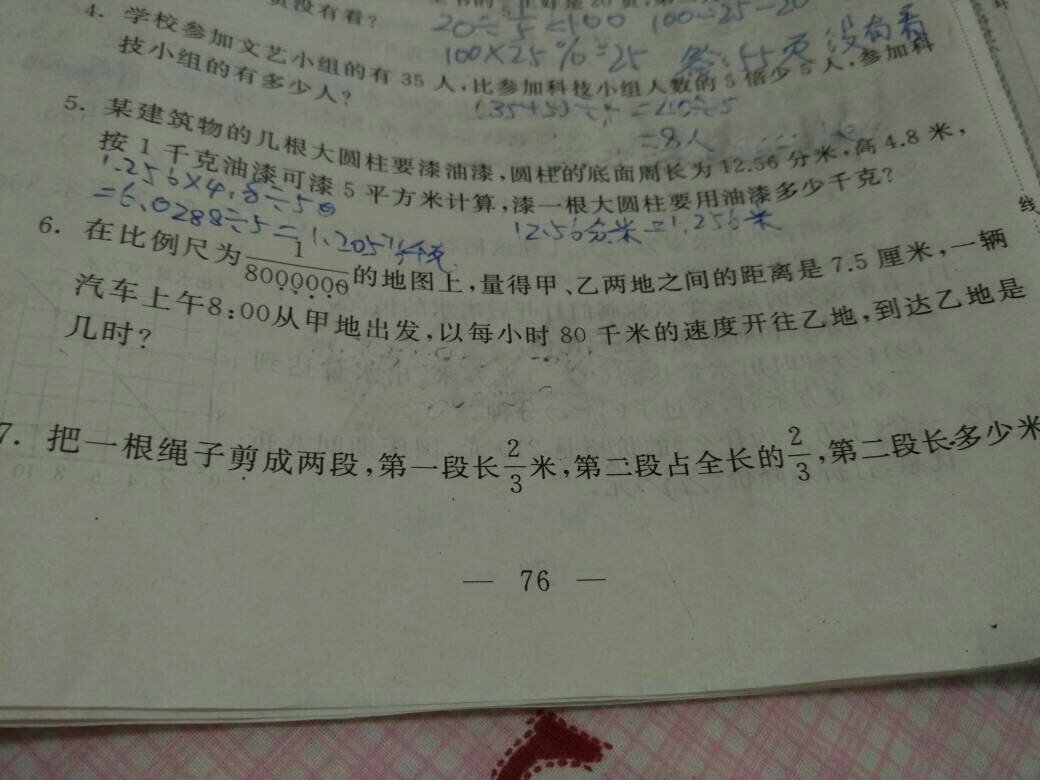 页没有看?
20÷1/5=100 100-25-20
100×25%=25 答:55页没有看
4. 学校参加文艺小组的有 35 人,比参加科技小组人数的 5 倍少 5 人,参加科
技小组的有多少人?
(35+5)÷5=40÷5
=8人
5. 某建筑物的几根大圆柱要漆油漆,圆柱的底面周长为 12.56 分米,高 4.8 米,
按 1 千克油漆可漆 5 平方米计算,漆一根大圆柱要用油漆多少千克?
1.256×4.8÷5
=6.0288÷5=1.20576千克
12.56分米=1.256米
6. 在比例尺为 1/8000000 的地图上,量得甲、乙两地之间的距离是 7.5 厘米,一辆
汽车上午8:00从甲地出发,以每小时 80 千米的速度开往乙地,到达乙地是
几时?
7. 把一根绳子剪成两段,第一段长 2/3 米,第二段占全长的 2/3,第二段长多少米
— 76 —
线